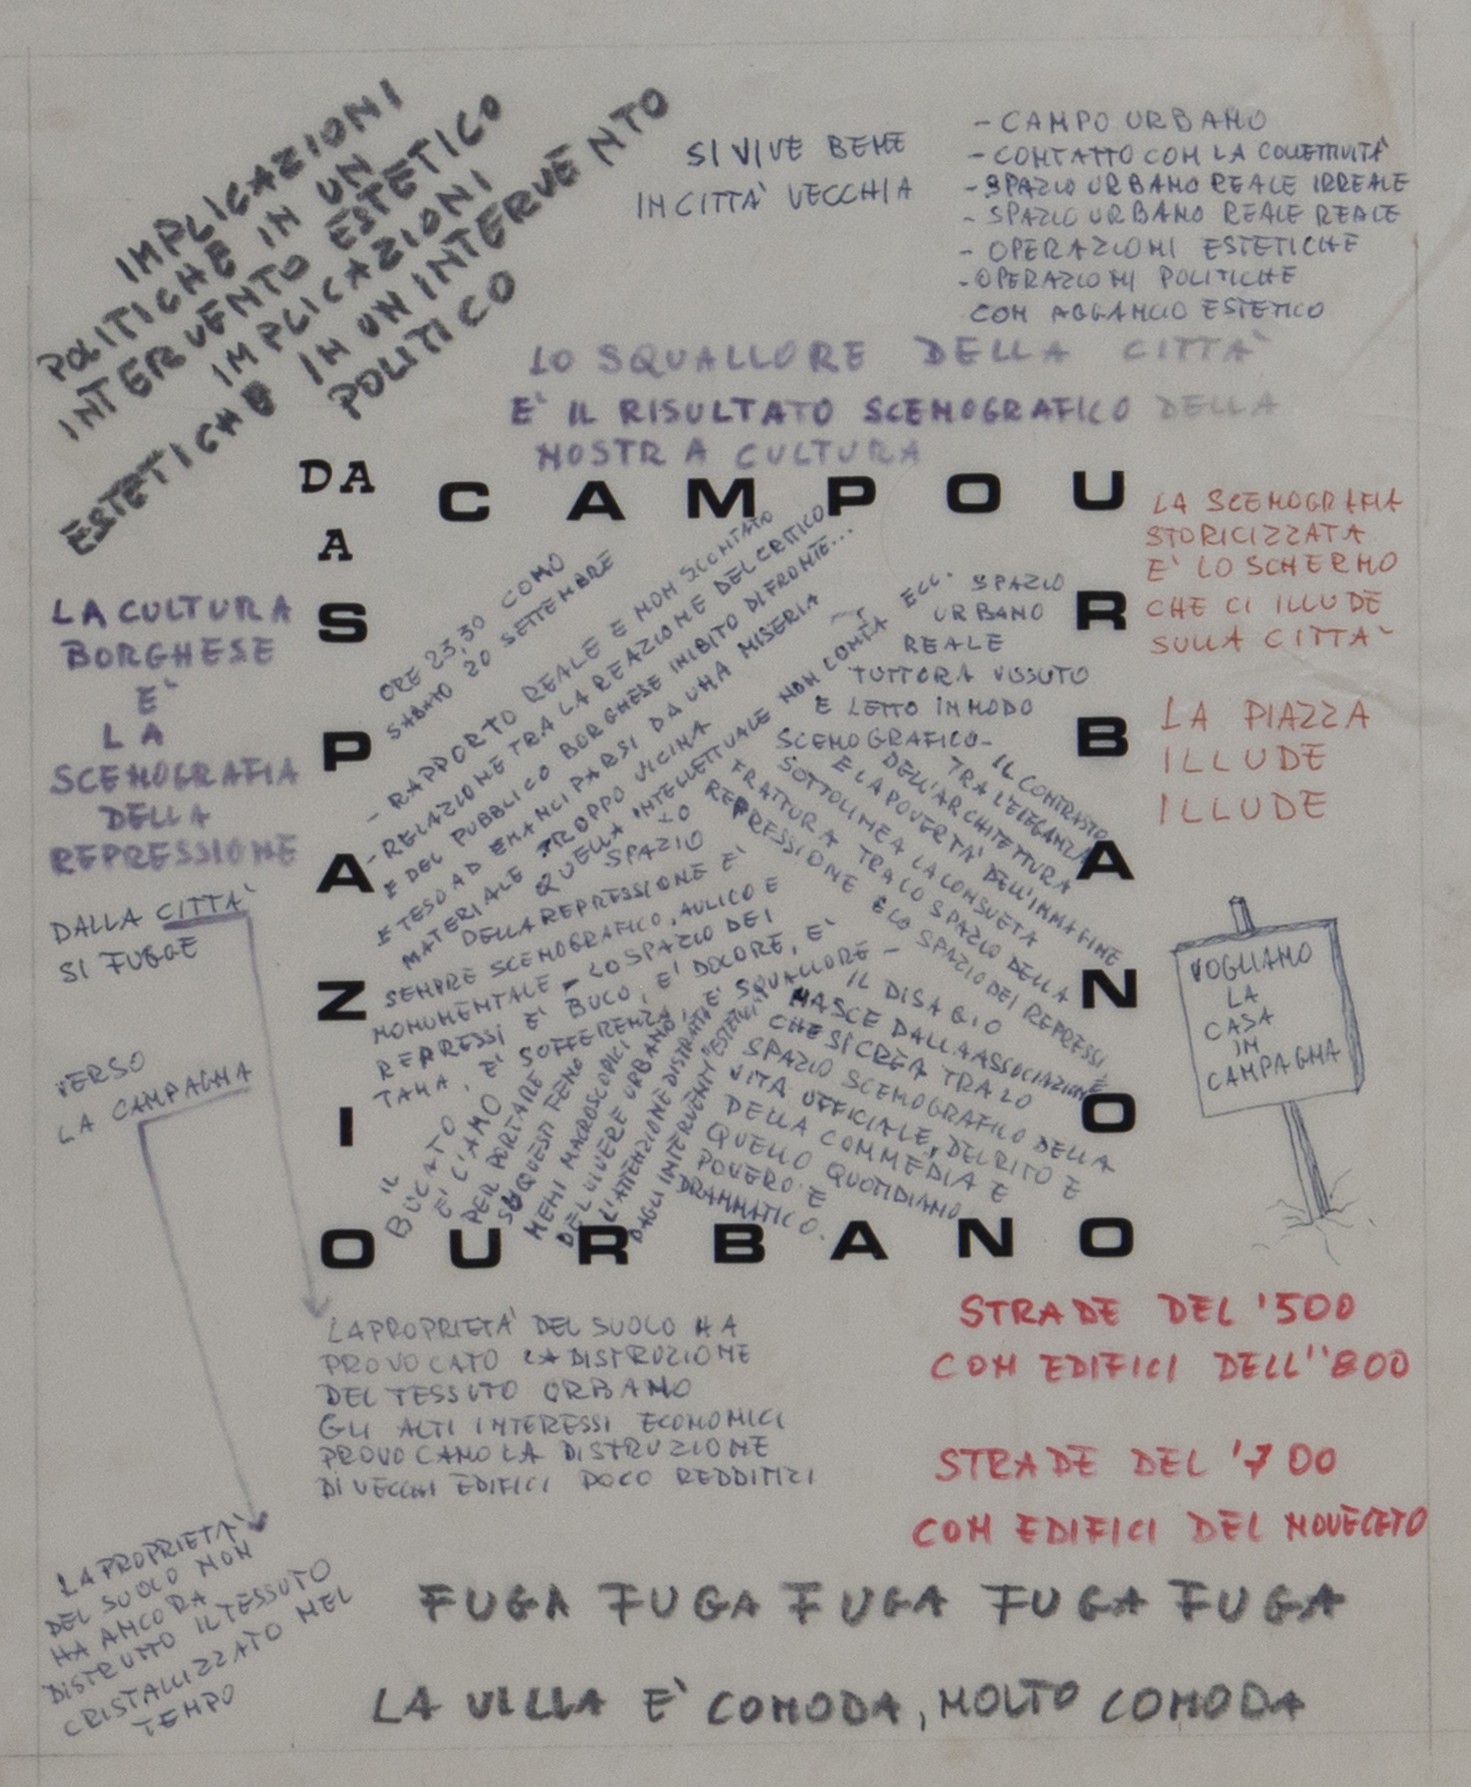 IMPLICAZIONI
POLITICHE IN UN
INTERVENTO ESTETICO
IMPLICAZIONI
ESTETICHE IN UN INTERVENTO
POLITICO
SI VIVE BENE
IN CITTA' VECCHIA
- CAMPO URBANO
- CONTATTO CON LA COLLETTIVITA'
- SPAZIO URBANO REALE IRREALE
- SPAZIO URBANO REALE REALE
- OPERAZIONI ESTETICHE
- OPERAZIONI POLITICHE
CON AGGANCIO ESTETICO
LO SQUALLORE DELLA CITTA'
E' IL RISULTATO SCENOGRAFICO DELLA
NOSTRA CULTURA
DA CAMPOURBANO
A SPAZIOURBANO
LA CULTURA
BORGHESE
E'
LA
SCENOGRAFIA
DELLA
REPRESSIONE
LA SCENOGRAFIA
STORICIZZATA
E' LO SCHERMO
CHE CI ILLUDE
SULLA CITTA'
LA PIAZZA
ILLUDE
ILLUDE
ORE 23,30 COMO
SABATO 20 SETTEMBRE
- RAPPORTO REALE E NON SCONTATO
- RELAZIONE TRA LA REAZIONE DEL CRITICO
E DEL PUBBLICO BORGHESE INIBITO DI FRONTE...
E TESO AD EMANCIPARSI DA UNA MISERIA
MATERIALE TROPPO VICINA
QUELLA INTELLETTUALE NON CONTA ECC.
LO
SPAZIO
DELLA REPRESSIONE E'
SEMPRE SCENOGRAFICO, AULICO E
MONUMENTALE - LO SPAZIO DEI
REPRESSI E' BUCO, E' DOLORE, E'
TANA, E' SOFFERENZA, E' SQUALLORE -
SPAZIO
URBANO
REALE
TUTTORA VISSUTO
E LETTO IN MODO
SCENOGRAFICO -
IL CONTRASTO
TRA L'ELEGANZA
DELL'ARCHITETTURA
E LA POVERTA' DELL'IMMAGINE
SOTTOLINEA LA CONSUETA
FRATTURA TRA LO SPAZIO DELLA
REPRESSIONE E LO SPAZIO DEI REPRESSI,
IL DISAGIO
NASCE DALL'ASSOCIAZIONE
CHE SI CREA TRA LO
SPAZIO SCENOGRAFICO DELLA
VITA UFFICIALE, DEL RITO E
DELLA COMMEDIA E
QUELLO QUOTIDIANO
POVERO E
DRAMMATICO.
IL
BUCATO,
E' L'AMO
PER PORTARE
SU QUESTI FENO
MENI MACROSCOPICI
DEL VIVERE URBANO,
L'ATTENZIONE DISTRATTA
DAGLI INTERVENTI "ESTETICI"
DALLA CITTA'
SI FUGGE
VERSO
LA CAMPAGNA
VOGLIAMO
LA
CASA
IN
CAMPAGNA
LA PROPRIETA' DEL SUOLO HA
PROVOCATO LA DISTRUZIONE
DEL TESSUTO URBANO
GLI ALTI INTERESSI ECONOMICI
PROVOCANO LA DISTRUZIONE
DI VECCHI EDIFICI POCO REDDITIZI
STRADE DEL '500
CON EDIFICI DELL''800
STRADE DEL '700
CON EDIFICI DEL NOVECETO
LA PROPRIETA'
DEL SUOLO NON
HA ANCORA
DISTRUTTO IL TESSUTO
CRISTALLIZZATO NEL
TEMPO
FUGA FUGA FUGA FUGA FUGA
LA VILLA E' COMODA, MOLTO COMODA